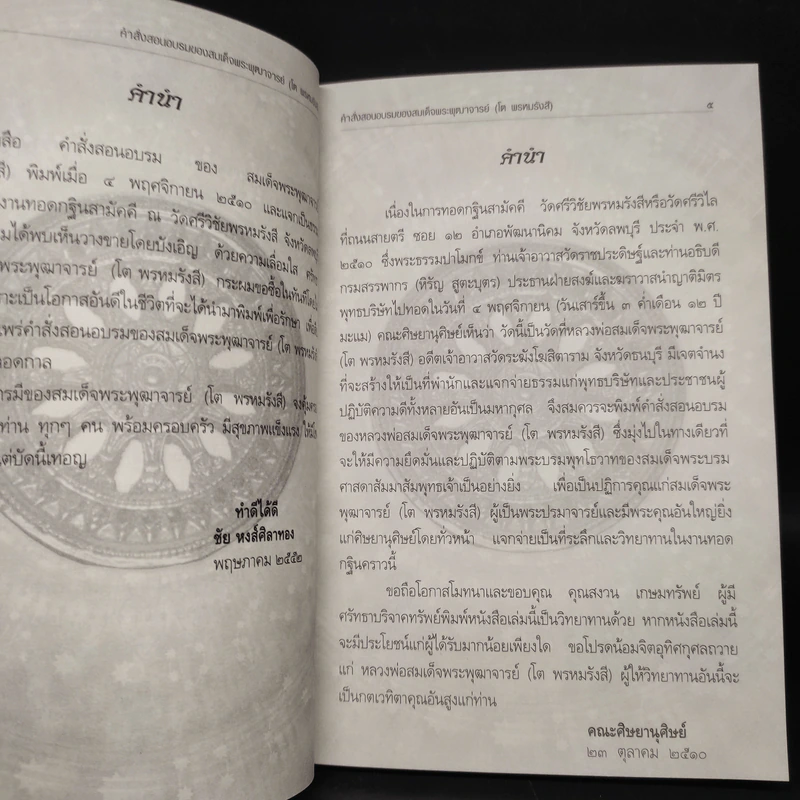 คำสั่งสอนอบรมของสมเด็จพระพุฒาจารย์ (โต
คำนำ
คำสั่งสอนอบรม ของ สมเด็จพระพุฒาจารย์
พิมพ์เมื่อ ๔ พฤศจิกายน ๒๕๑๐ และแจกเป็น
งานทอดกฐินสามัคคี ณ วัดศรีวิชัยพรหมรังสี จังหวัด
ได้พบเห็นวางขายโดยบังเอิญ ด้วยความเลื่อมใส
พระพุฒาจารย์ (โต พรหมรังสี) กระผมขอซื้อในทันที
เป็นโอกาสอันดีในชีวิตที่จะได้นำมาพิมพ์เพื่อรักษา
แพร่คำสั่งสอนอบรมของสมเด็จพระพุฒาจารย์ (โต
กาล
ของสมเด็จพระพุฒาจารย์ (โต พรหมรังสี)
ท่าน ทุกๆ คน พร้อมครอบครัว มีสุขภาพแข็งแรง
บัดนี้เทอญ
ทำดีได้ดี
ชัย หงส์ศิลาทอง
พฤษภาคม ๒๕๕๒
คำสั่งสอนอบรมของสมเด็จพระพุฒาจารย์ (โต พรหมรังสี) ๕
คำนำ
เนื่องในการทอดกฐินสามัคคี วัดศรีวิชัยพรหมรังสีหรือวัดศรีวิไล
ที่ถนนสายตรี ซอย ๑๒ อำเภอพัฒนานิคม จังหวัดลพบุรี ประจำ พ.ศ.
๒๕๑๐ ซึ่งพระธรรมปาโมกข์ ท่านเจ้าอาวาสวัดราชประดิษฐ์และท่านอธิบดี
กรมสรรพากร (หิรัญ สูตะบุตร) ประธานฝ่ายสงฆ์และฆราวาสนำญาติมิตร
พุทธบริษัทไปทอดในวันที่ ๔ พฤศจิกายน (วันเสาร์ขึ้น ๓ ค่ำเดือน ๑๒ ปี
มะแม) คณะศิษยานุศิษย์เห็นว่า วัดนี้เป็นวัดที่หลวงพ่อสมเด็จพระพุฒาจารย์
(โต พรหมรังสี) อดีตเจ้าอาวาสวัดระฆังโฆสิตาราม จังหวัดธนบุรี มีเจตจำนง
ที่จะสร้างให้เป็นที่พำนักและแจกจ่ายธรรมแก่พุทธบริษัทและประชาชนผู้
ปฏิบัติความดีทั้งหลายอันเป็นมหากุศล จึงสมควรจะพิมพ์คำสั่งสอนอบรม
ของหลวงพ่อสมเด็จพระพุฒาจารย์ (โต พรหมรังสี) ซึ่งมุ่งไปในทางเดียวที่
จะให้มีความยึดมั่นและปฏิบัติตามพระบรมพุทโธวาทของสมเด็จพระบรม
ศาสดาสัมมาสัมพุทธเจ้าเป็นอย่างยิ่ง เพื่อเป็นปฏิการคุณแก่สมเด็จพระ
พุฒาจารย์ (โต พรหมรังสี) ผู้เป็นพระปรมาจารย์และมีพระคุณอันใหญ่ยิ่ง
แก่ศิษยานุศิษย์โดยทั่วหน้า แจกจ่ายเป็นที่ระลึกและวิทยาทานในงานทอด
กฐินคราวนี้
ขอถือโอกาสโมทนาและขอบคุณ คุณสงวน เกษมทรัพย์ ผู้มี
ศรัทธาบริจาคทรัพย์พิมพ์หนังสือเล่มนี้เป็นวิทยาทานด้วย หากหนังสือเล่มนี้
จะมีประโยชน์แก่ผู้ได้รับมากน้อยเพียงใด ขอโปรดน้อมจิตอุทิศกุศลถวาย
แก่ หลวงพ่อสมเด็จพระพุฒาจารย์ (โต พรหมรังสี) ผู้ให้วิทยาทานอันนี้จะ
เป็นกตเวทิตาคุณอันสูงแก่ท่าน
คณะศิษยานุศิษย์
๒๓ ตุลาคม ๒๕๑๐